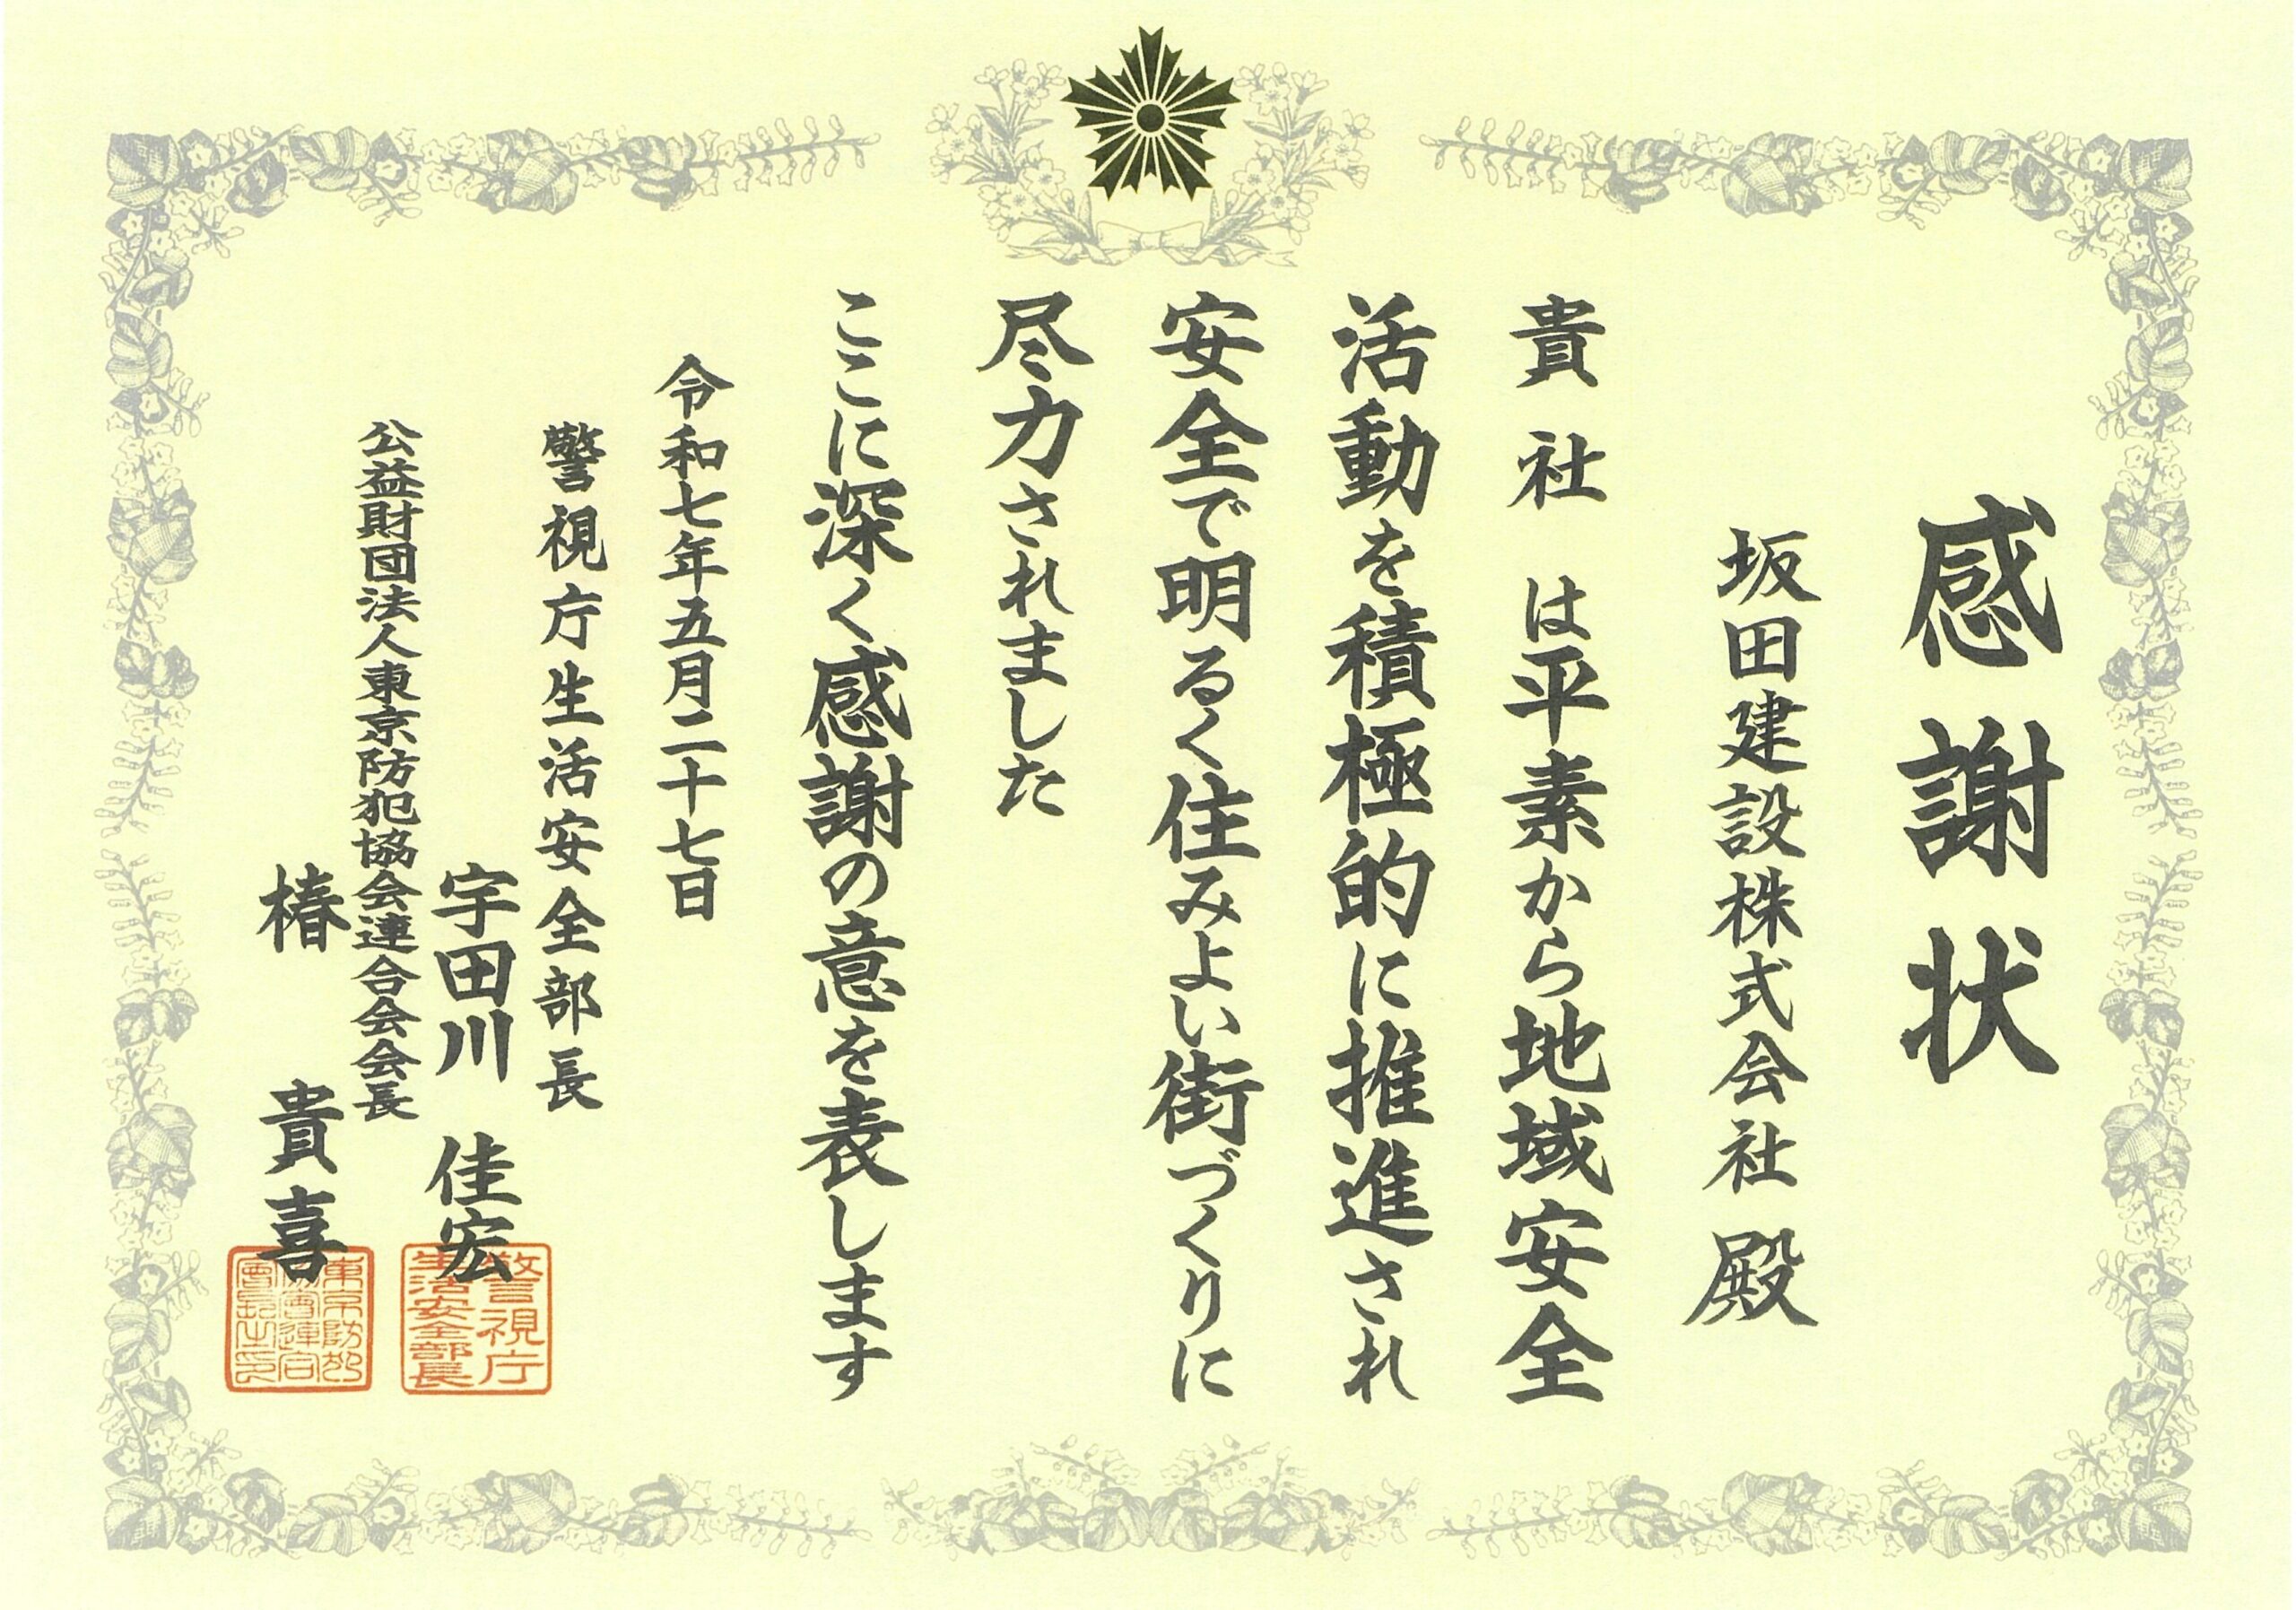 感謝状
坂田建設株式会社 殿
貴社は平素から地域安全
活動を積極的に推進され
安全で明るく住みよい街づくりに
尽力されました
ここに深く感謝の意を表します
令和七年五月二十七日
警視庁生活安全部長
宇田川 佳宏
公益財団法人東京防犯協会連合会会長
椿 貴喜
警視庁
生活安全部長